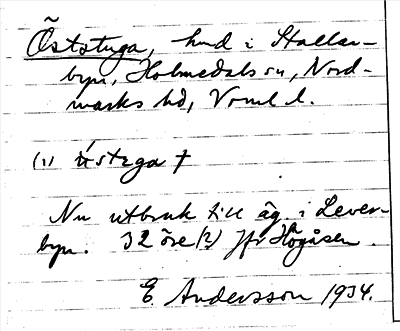 Öststuga, hmd i Stallar-
byn, Holmedals sn, Nord-
marks hd, Vrml l.
(1) ústsga †
Nu utbruk till äg. i Lever-
byn. 32 öre (2) Jfr Högåsen.
E. Andersson 1934.